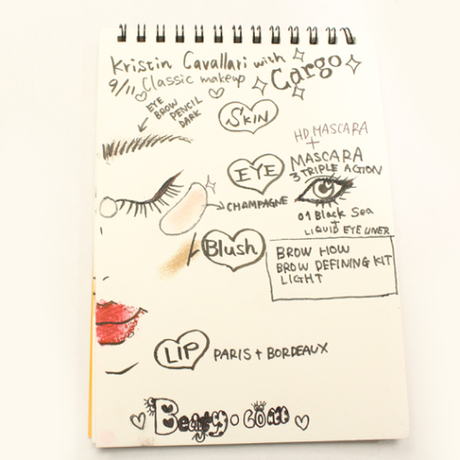 Kristin Cavallari with
9/11 Classic makeup Cargo
EYE
BROW PENCIL
DARK
SKIN
HD MASCARA
+
MASCARA
3 TRIPLE ACTION
EYE
CHAMPAGNE
01 Black Sea
+
LIQUID EYE LINER
Blush
BROW HOW
BROW DEFINING KIT
LIGHT
LIP PARIS + BORDEAUX